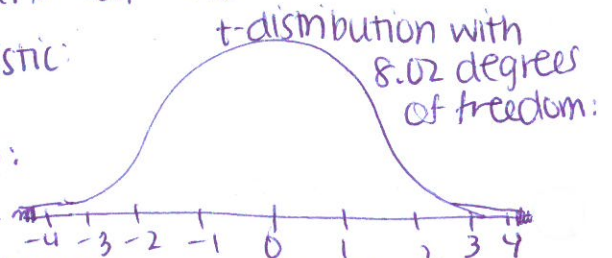 t-distribution with
stic:
8.02 degrees
of freedom:
:
-4 -3 -2 -1 0 1 2 3 4